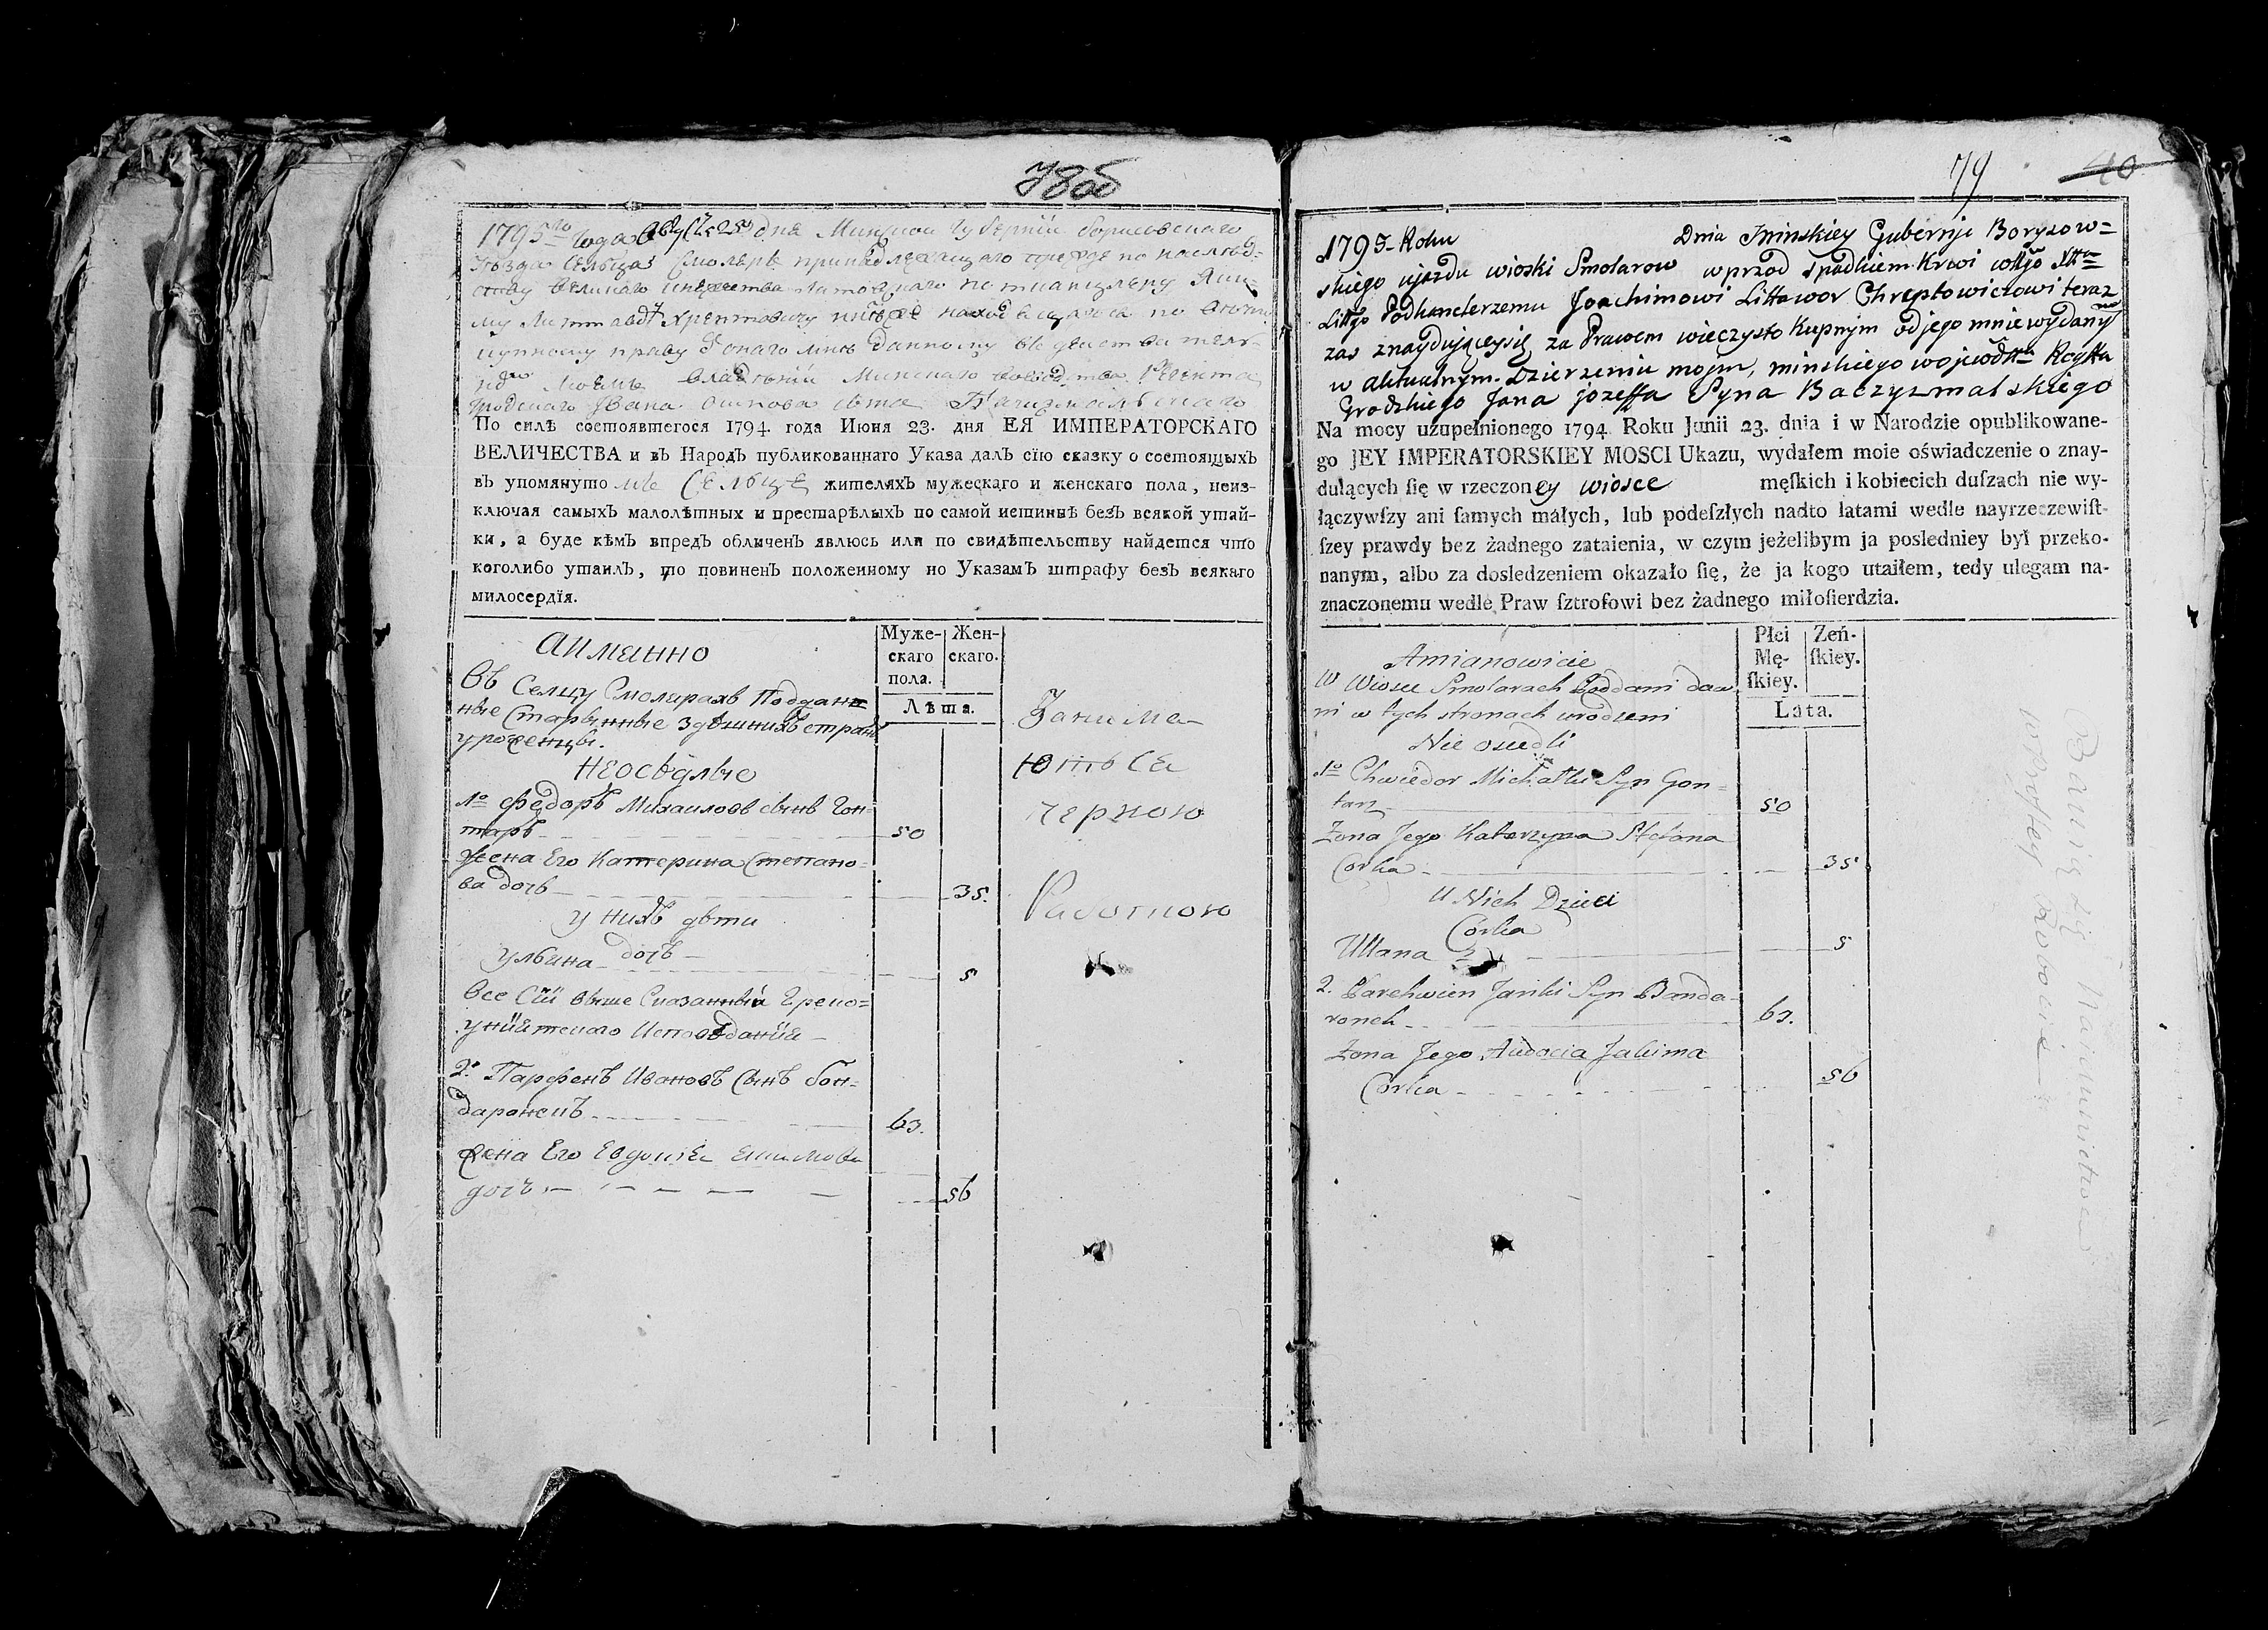 78об
1795го года Августа 25 дня Минской Губернии Борисовского
уезда сельца Смоляръ принадлежащаго прежде по наслед-
ству Великаго Княжества Литовскаго подканцлеру Яки-
му Литтавору Хрептовичу ныне же находящагося по вечно
купному праву от онаго мне данному въ действитель-
номъ моемъ владении Минскаго воеводства Регента
Гродского Ивана Осипова сына Бачизмальского
По силѣ состоявшегося 1794. года Июня 23. дня ЕЯ ИМПЕРАТОРСКАГО
ВЕЛИЧЕСТВА и въ Народъ публикованнаго Указа далъ сїю сказку о состоящыхъ
въ упомянутомъ Сельце жителяхъ мужескаго и женскаго пола, неиз-
ключая самыхъ малолѣтных и престарѣлыхъ по самой истиннѣ безъ всякой утай-
ки, а буде кѣмъ впредъ обличенъ явлюсь или по свидѣтельству найдется что
коголибо утаилъ, то повиненъ положенному по Указамъ штрафу безъ всякаго
милосердїя.
Аименно
Муже-
скаго
пола.
Жен-
скаго.
Лѣта.
Въ Селцу Смолярахъ Поддан-
ные Старинные здешнихъ странъ
уроженцы.
Неоседлые
1о Федоръ Михайловъ сынъ Гон-
таръ 50
Жена Его Катерина Степано-
ва дочь 35.
У нихъ дети
Ульяна дочь 5
Все Сии выше Сказанныи Греко=
униятского Исповедания
2. Парфенъ Ивановъ Сынъ бон-
даронокъ 63.
Жена Его Евдокия Екимова
дочь 56
Занима-
ютъ Се
черною
Работою
79 40
1795-Roku Dnia Mińskiey Gubernji Borysow=
skiego ujazdu wioski Smolarow wprzod spadkiem Krwi wgo Xttwa
Littgo Podkanclerzemu Joachimowi Littawor Chreptowiczowi teraz
zas znaydującysię za Prawem wieczysto Kupnym od jego mnie wydanym
w aktualnym Dzierzeniu mojm, minskiego wojewodttwa Regtta
Grodzkiego Jana jozeffa Syna Baczyzmalskiego
Na mocy uzupełnionego 1794 Roku Junii 23. dnia i w Narodzie opublikowane-
go JEY IMPERATORSKIEY MOSCI Ukazu, wydałem moie oświadczenie o znay-
duiących ſię w rzeczoney wiosce męſkich i kobiecich duſzach nie wy-
łączywſzy ani ſamych małych, lub podeſzłych nadto latami wedle nayrzeczewiſt-
ſzey prawdy bez żadnego zataienia, w czym jeżelibym ja posledniey był przeko-
nanym, albo za dosledzeniem okazało ſię, że ja kogo utaiłem, tedy ulegam na-
znaczonemu wedle Praw ſztrofowi bez żadnego miłoſierdzia.
Amianowicie
Płci
Mę-
ſkiey.
Zeń-
ſkiey.
Lata.
W Wiosce Smolarach Poddani daw
ni w tych stronach urodzeni
Nie osiedli
1o Chwiedor Michałki Syn Gon=
tarz 50
Zona Jego Katarzyna Stefana
Corka 35
U Nich Dzieci
Corka
Ullana 5
2. Parchwien Janki Syn Banda-
ronek 63.
Zona Jego Audocia Jakima
Corka 56
Bawią się
w prostey Robocie